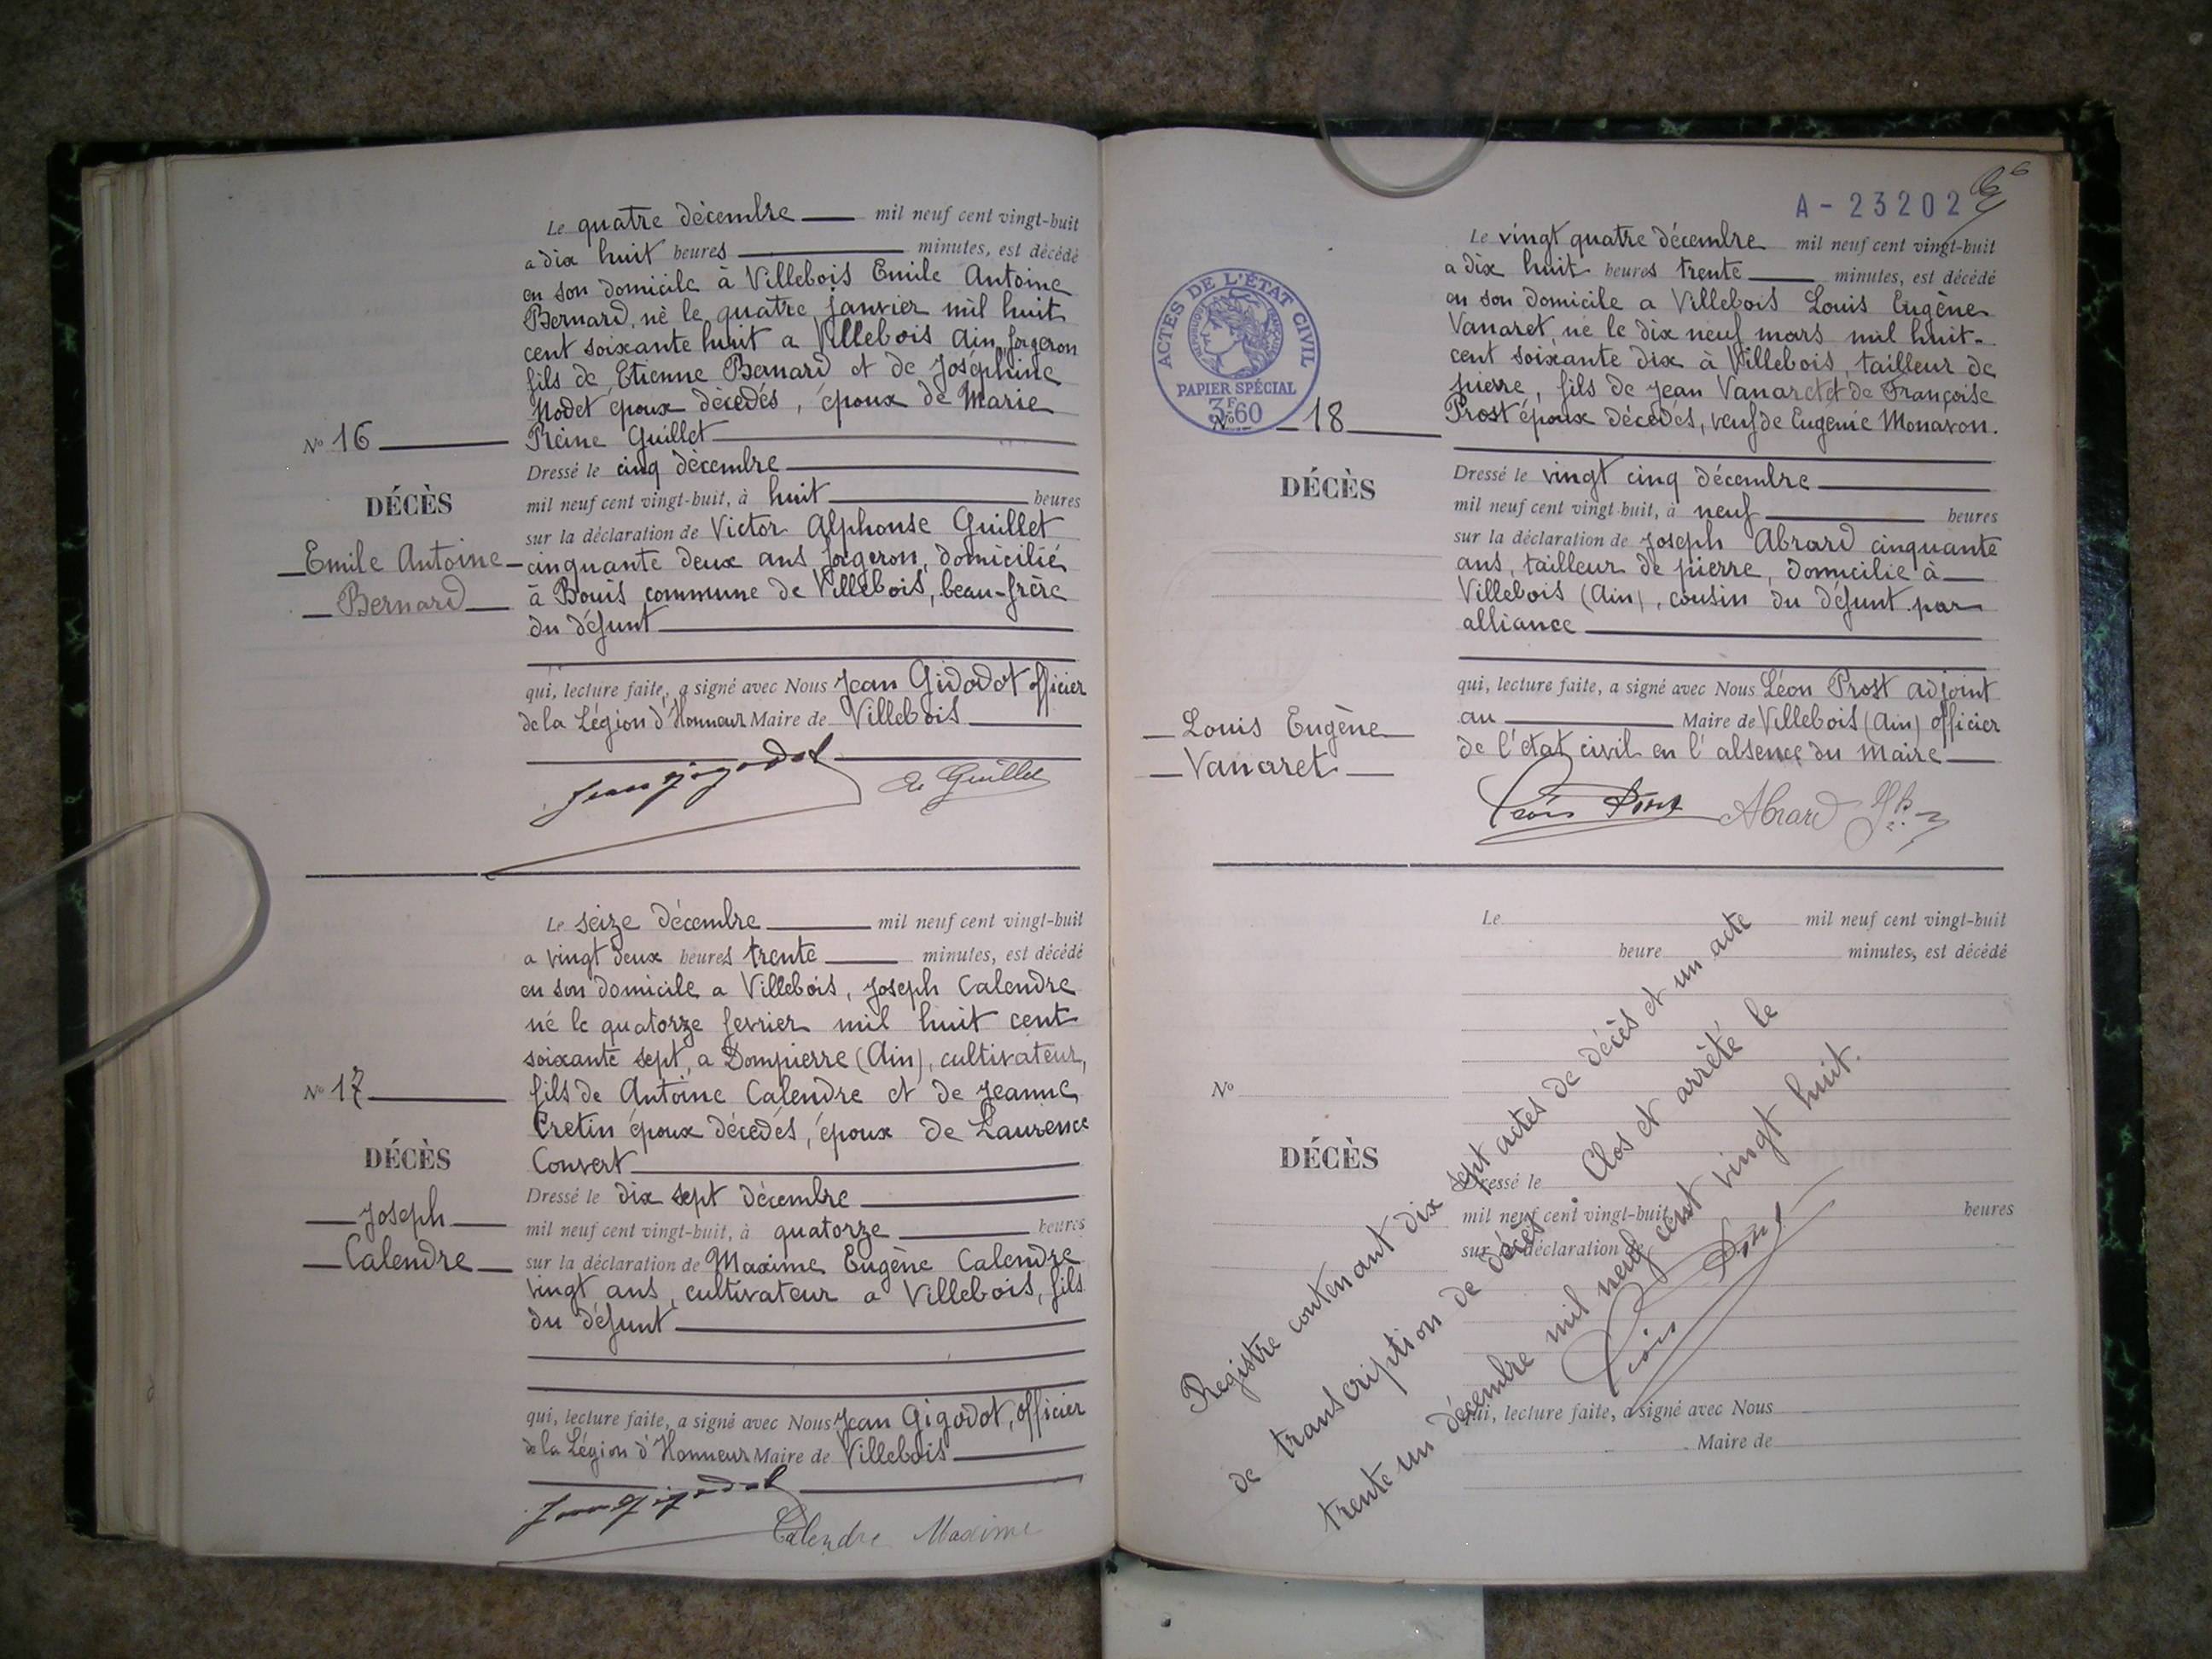 Le quatre décembre mil neuf cent vingt-huit
a dix huit heures minutes, est décédé
en son domicile à Villebois Emile Antoine
Bernard, né le quatre janvier mil huit
cent soixante huit a Villebois Ain, forgeron
fils de Etienne Bernard et de Joséphine
Nodet époux décédés, époux de Marie
Reine Guillet
N° 16
DÉCÈS
Emile Antoine
Bernard
Dressé le cinq décembre
mil neuf cent vingt-huit, à huit heures
sur la déclaration de Victor Alphonse Guillet
cinquante deux ans forgeron, domicilié
à Bouis commune de Villebois, beau-frère
du défunt
qui, lecture faite, a signé avec Nous Jean Gigodot officier
de la Légion d'Honneur Maire de Villebois
Jean Gigodot Guillet
Le seize décembre mil neuf cent vingt-huit
a vingt deux heures trente minutes, est décédé
en son domicile a Villebois, Joseph Calendre
né le quatorze fevrier mil huit cent
soixante sept, a Dompierre (Ain), cultivateur,
fils de Antoine Calendre et de Jeanne
Cretin époux décédés, époux de Laurence
Convert
N° 17
DÉCÈS
Joseph
Calendre
Dressé le dix sept décembre
mil neuf cent vingt-huit, à quatorze heures
sur la déclaration de Maxime Eugène Calendre
vingt ans, cultivateur a Villebois, fils
du défunt
qui, lecture faite, a signé avec Nous Jean Gigodot, officier
de la Légion d'Honneur Maire de Villebois
Jean Gigodot
Calendre Maxime
A - 23202
ACTES DE L'ÉTAT CIVIL
PAPIER SPÉCIAL
3F60
Le vingt quatre décembre mil neuf cent vingt-huit
a dix huit heures trente minutes, est décédé
en son domicile a Villebois Louis Eugène
Vanaret, né le dix neuf mars mil huit-
cent soixante dix à Villebois, tailleur de
pierre, fils de Jean Vanaret et de Françoise
Prost époux décédés, veuf de Eugenie Monavon.
N° 18
DÉCÈS
Louis Eugène
Vanaret
Dressé le vingt cinq décembre
mil neuf cent vingt-huit, à neuf heures
sur la déclaration de Joseph Abrard cinquante
ans, tailleur de pierre, domicilié à
Villebois (Ain), cousin du défunt par
alliance
qui, lecture faite, a signé avec Nous Léon Prost adjoint
au Maire de Villebois (Ain) officier
de l'état civil en l'absence du Maire
Léon Prost Abrard
Le mil neuf cent vingt-huit
heure minutes, est décédé
N°
DÉCÈS
Dressé le
mil neuf cent vingt-huit, à heures
sur la déclaration de
qui, lecture faite, a signé avec Nous
Maire de
Registre contenant dix sept actes de décès et un acte
de transcription de décès. Clos et arrêté le
trente un décembre mil neuf cent vingt huit.
Léon Prost